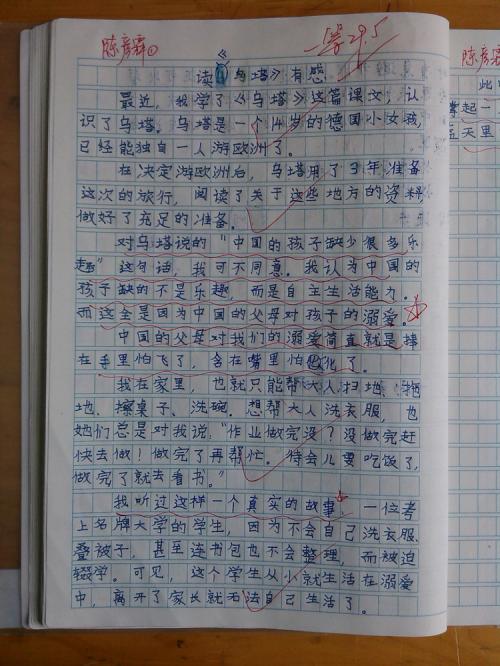 陈彦霖①
一等29.5
读《乌塔》有感
最近，我学了《乌塔》这篇课文，认
识了乌塔。乌塔是一个14岁的德国小女孩，
已经能独自一人游欧洲了。
在决定游欧洲后，乌塔用了3年准备
这次的旅行，阅读了关于这些地方的资料，
做好了充足的准备。
对乌塔说的"中国的孩子缺少很多乐
趣"这句话，我可不同意。我认为中国的
孩子缺的不是乐趣，而是自主生活能力。
而这全是因为中国的父母对孩子的溺爱。
中国的父母对我们的溺爱简直就是捧
在手里怕飞了，含在嘴里怕化了。
我在家里，也就只能帮大人扫地、拖
地、擦桌子、洗碗。想帮大人洗衣服，也
她们总是对我说："作业做完没？没做完赶
快去做！做完了再帮忙。待会儿要吃饭了，
做完了就去看书。"
我听过这样一个真实的故事。一位考
上名牌大学的学生，因为不会自己洗衣服、
叠被子，甚至连书包也不会整理，而被迫
辍学。可见，这个学生从小就生活在溺爱
中，离开了家长就无法自己生活了。
陈彦霖
此
掌起一
五天里